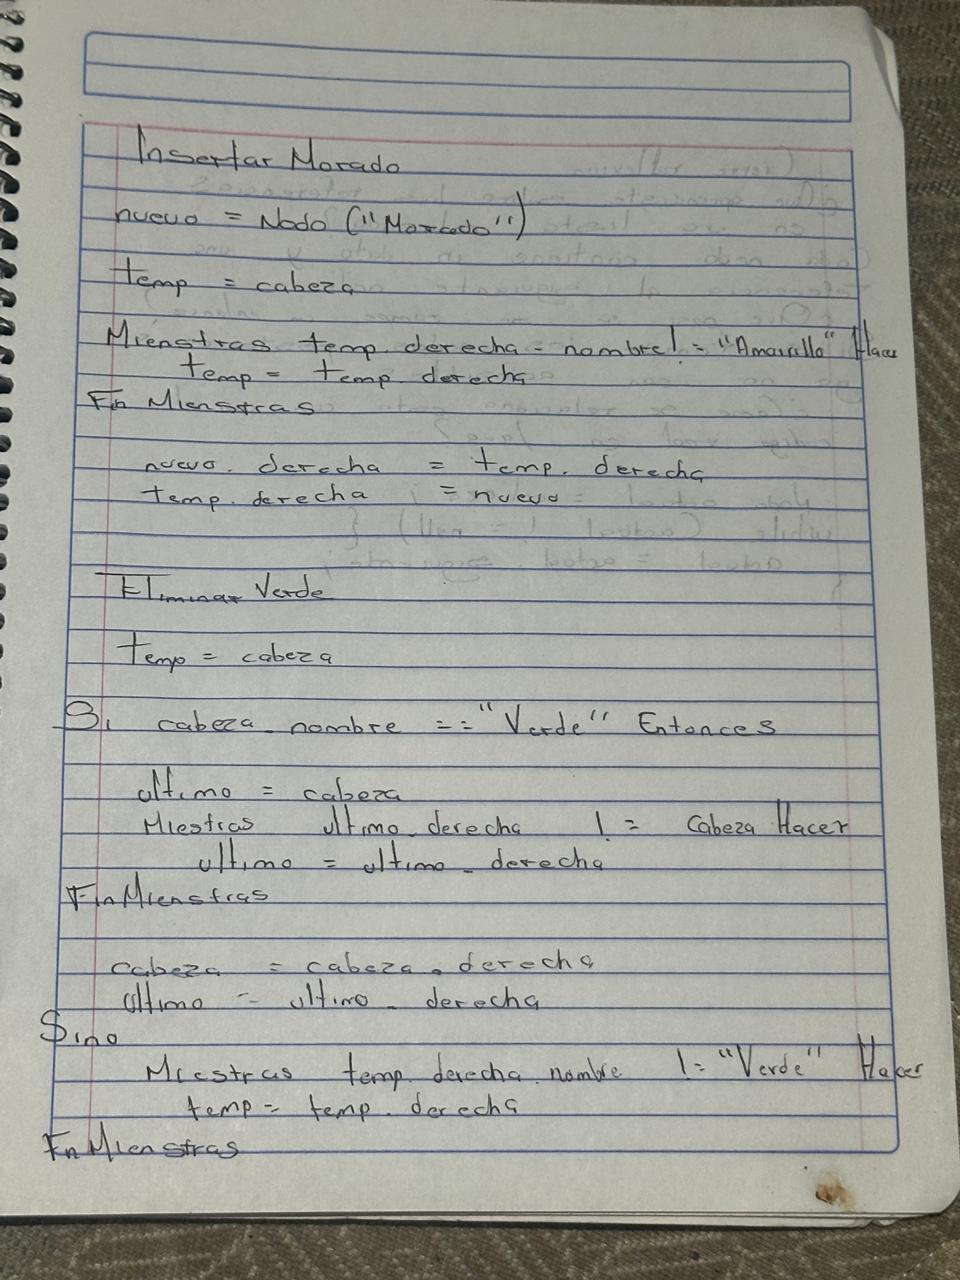 Insertar Morado
nuevo = Nodo ("Morado")
temp = cabeza
Mienstras temp. derecha - nombre != "Amarillo" Hacer
temp = temp. derecha
Fin Mienstras
nuevo. derecha = temp. derecha
temp. derecha = nuevo
Eliminar Verde
temp = cabeza
Si cabeza. nombre == "Verde" Entonces
ultimo = cabeza
Miestras ultimo. derecha != Cabeza Hacer
ultimo = ultimo. derecha
Fin Mienstras
cabeza = cabeza. derecha
ultimo = ultimo. derecha
Sino
Miestras temp. derecha. nombre != "Verde" Hacer
temp = temp. derecha
Fn Mienstras